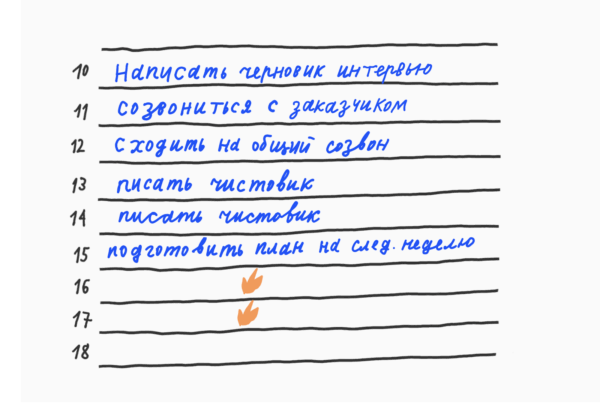 10 Написать черновик интервью
11 созвониться с заказчиком
12 Сходить на общий созвон
13 писать чистовик
14 писать чистовик
15 подготовить план на след. неделю
16
17
18